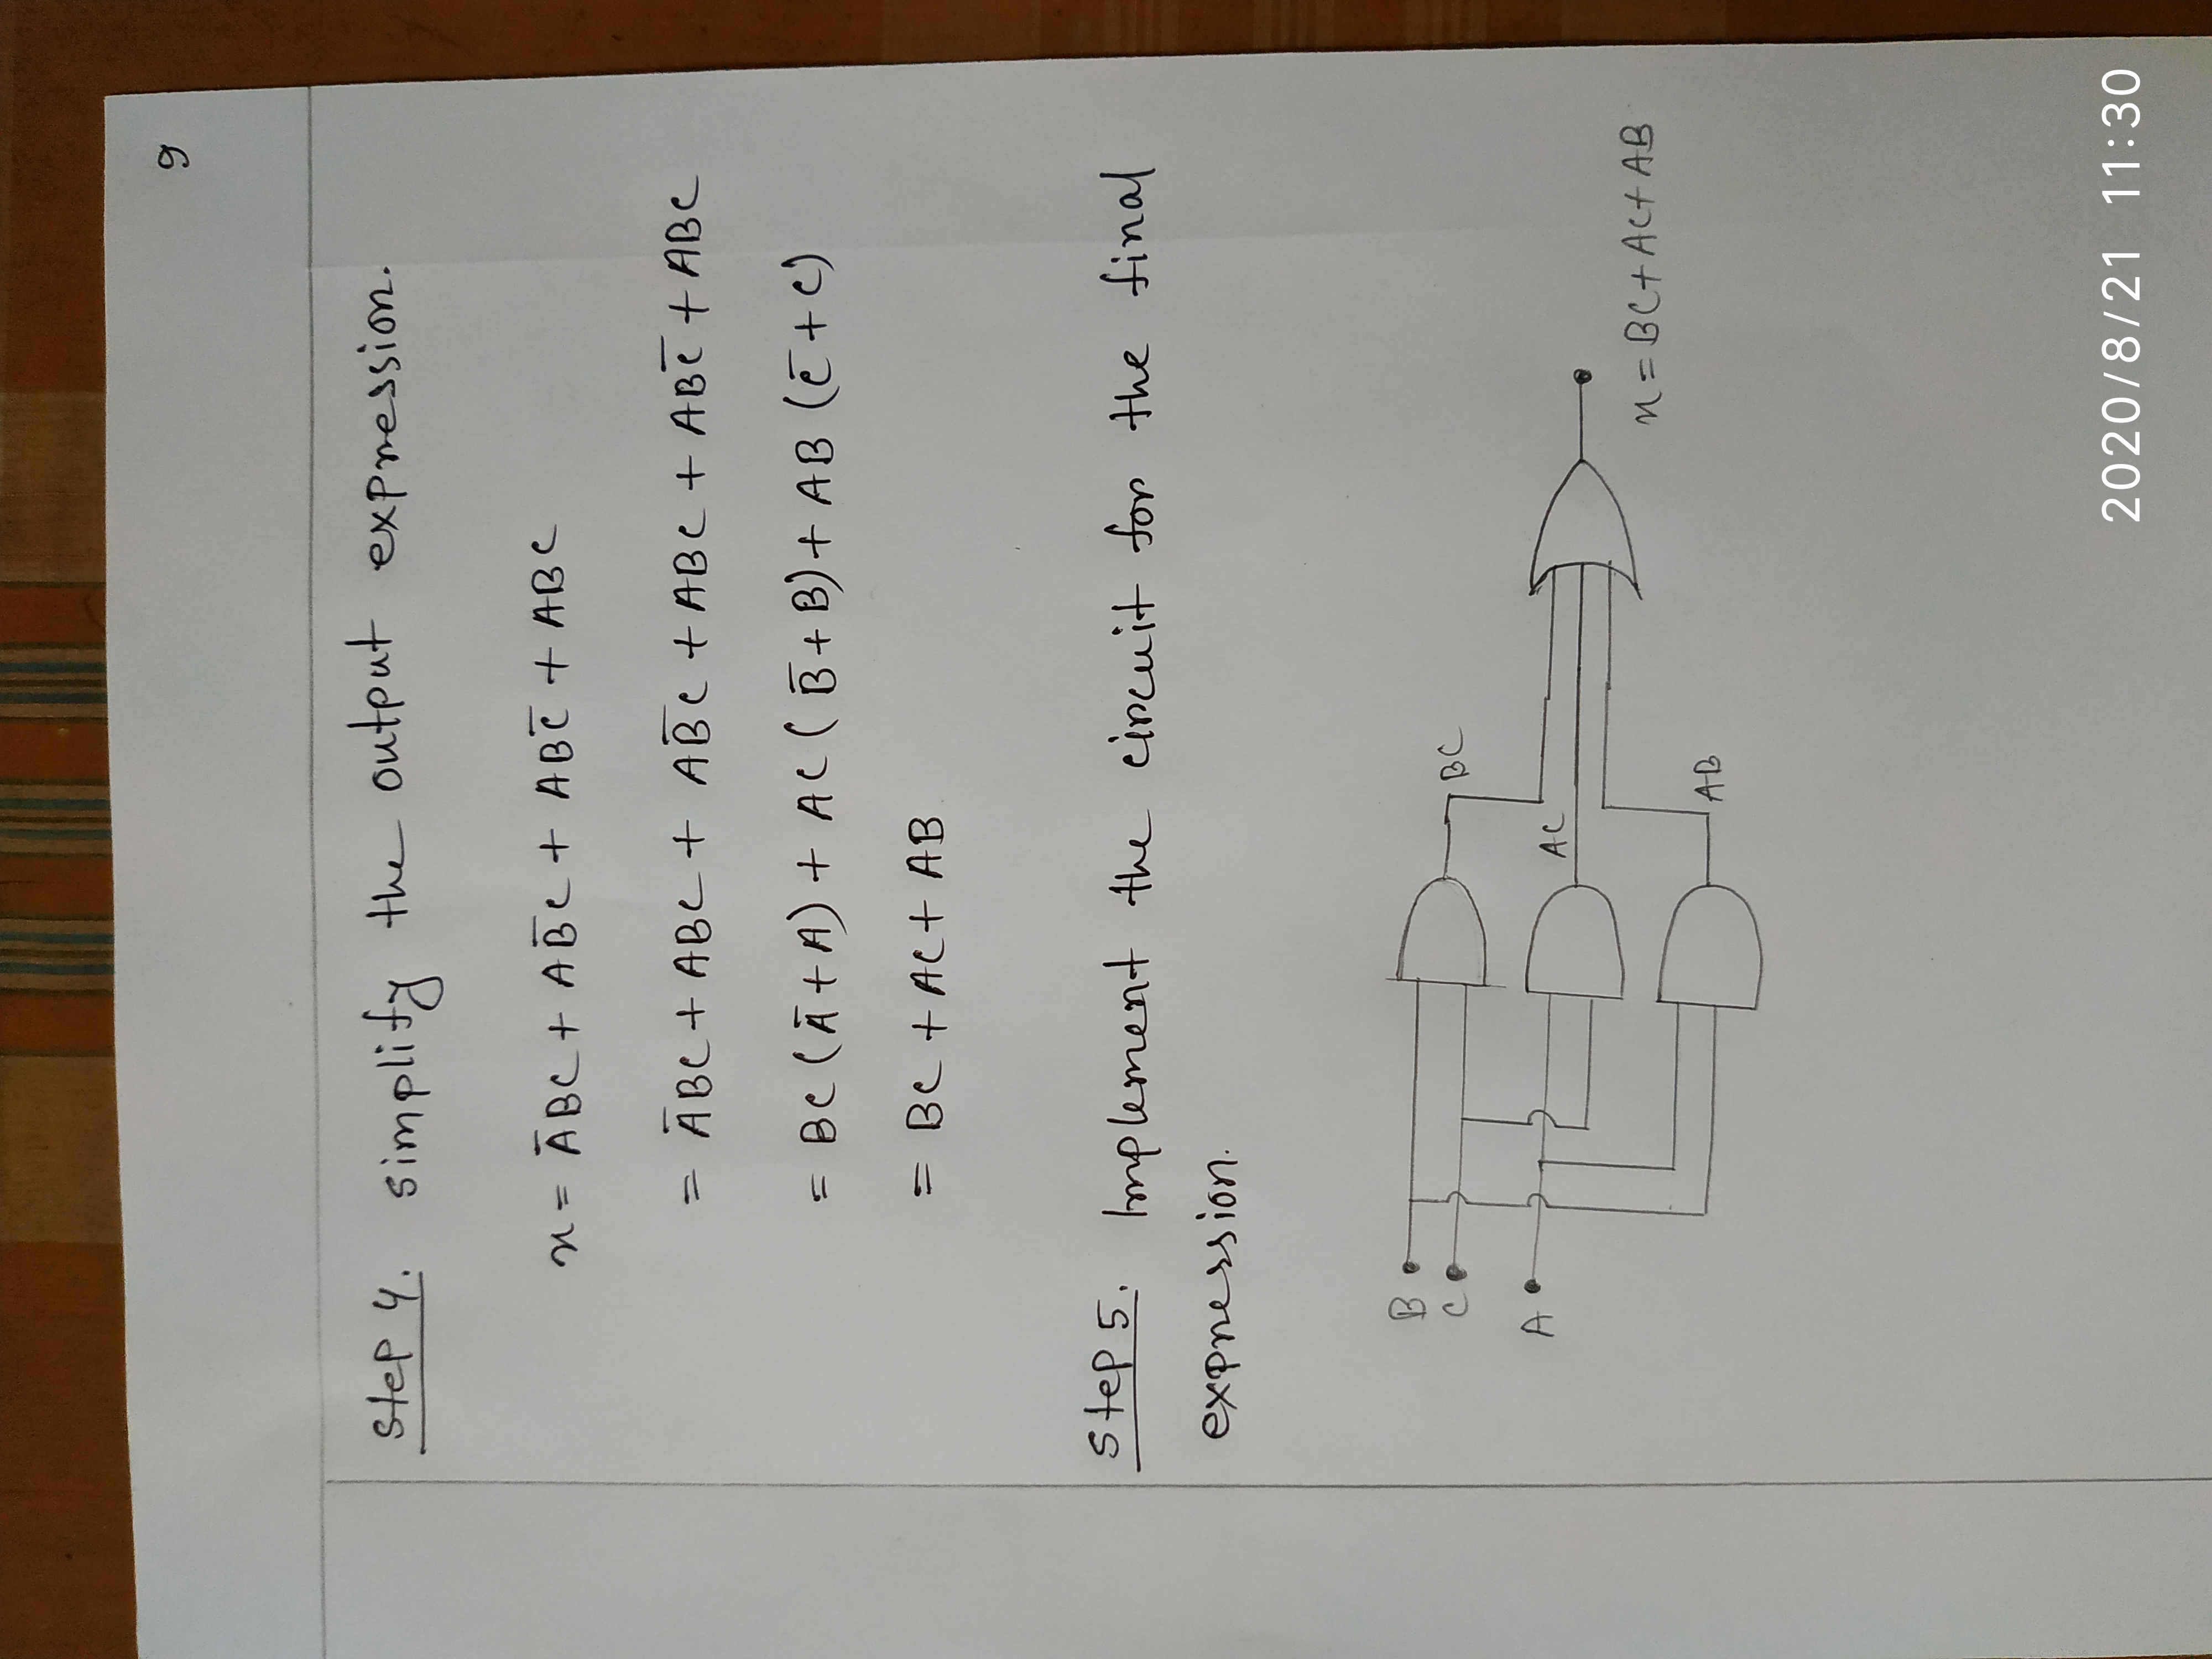 9
Step 4. simplify the output expression.
x = A̅BC + AB̅C + ABC̅ + ABC
= A̅BC + ABC + AB̅C + ABC + ABC̅ + ABC
= BC(A̅+A) + AC(B̅+B) + AB(C̅+C)
= BC + AC + AB
Step 5. Implement the circuit for the final
expression.
B
C
BC
A
AC
x = BC+AC+AB
AB
2020/8/21 11:30